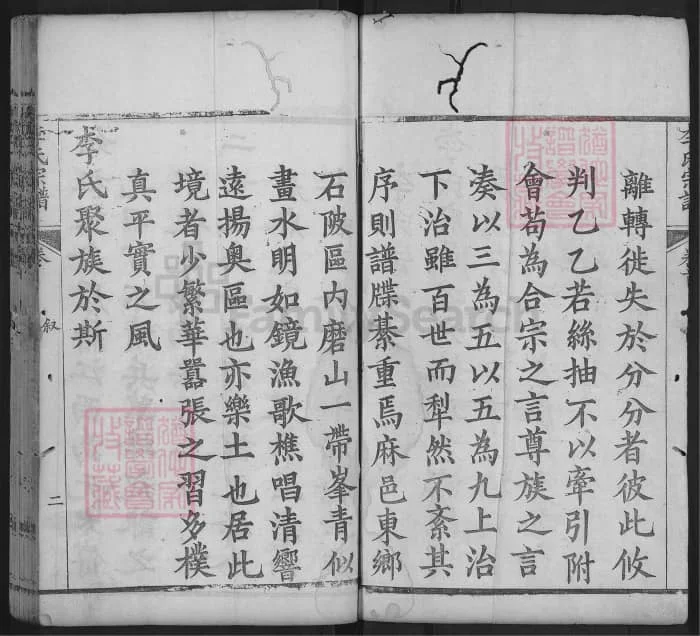 離轉徙失於分分者彼此攸
判乙乙若絲抽不以牽引附
會苟為合宗之言尊族之言
湊以三為五以五為九上治
下治雖百世而犁然不紊其
序則譜牒綦重焉麻邑東鄉
石陂區內磨山一帶峯青似
畫水明如鏡漁歌樵唱清響
遠揚奧區也亦樂土也居此
境者少繁華囂張之習多樸
真平實之風
李氏聚族於斯
李氏宗譜
叙
二
FamilySearch